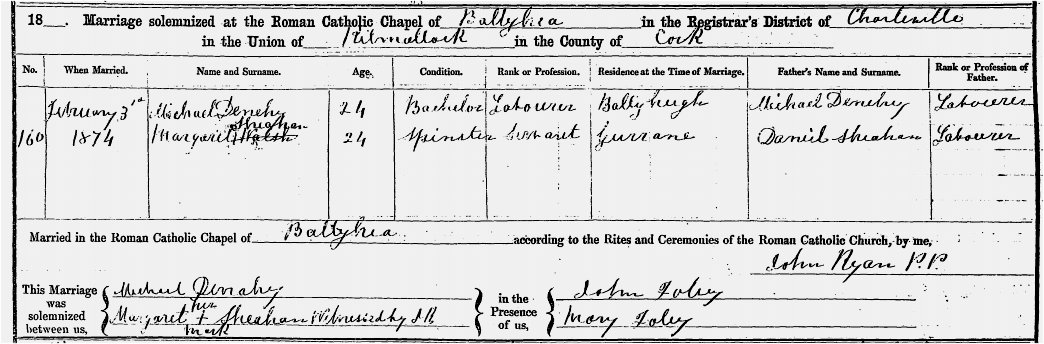 18__. Marriage solemnized at the Roman Catholic Chapel of Ballyhea in the Registrar's District of Charleville
in the Union of Kilmallock in the County of Cork
No. When Married. Name and Surname. Age. Condition. Rank or Profession. Residence at the Time of Marriage. Father's Name and Surname. Rank or Profession of Father.
February 3rd Michael Denehy 24 Bachelor Labourer Ballyhugh Michael Denehy Labourer
Sheahan
160 1874 Margaret Walsh 24 Spinster Servant Gurrane Daniel Sheahan Labourer
Married in the Roman Catholic Chapel of Ballyhea according to the Rites and Ceremonies of the Roman Catholic Church, by me,
John Ryan P.P.
This Marriage was solemnized between us,
Michael Denehy
her
Margaret + Sheahan Witnessed by J.R.
mark
in the Presence of us,
John Foley
Mary Foley